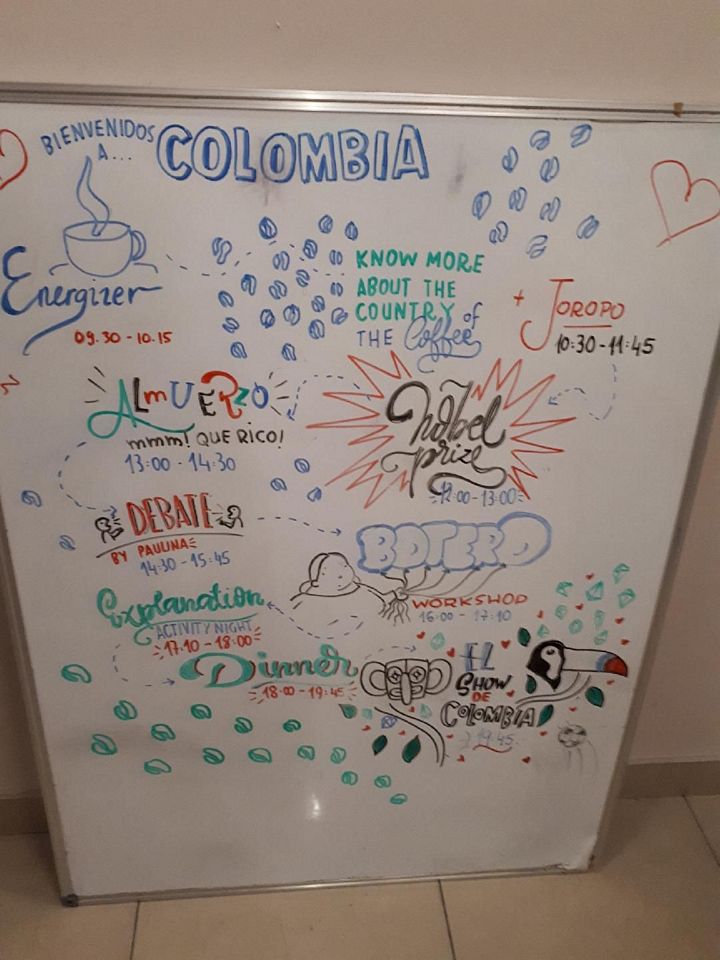 BIENVENIDOS
A...
COLOMBIA
Energizer
09.30 - 10.15
KNOW MORE
ABOUT THE
COUNTRY of
THE Coffee
+ JOROPO
10:30 - 11:45
ALMUERZO
mmm! QUE RICO!
13:00 - 14:30
Nobel
prize
12:00 - 13:00
DEBATE
BY PAULINA
14:30 - 15:45
BOTERO
WORKSHOP
16:00 - 17:10
Explanation
ACTIVITY NIGHT
17.10 - 18:00
Dinner
18:00 - 19:45
EL
SHOW
DE
COLOMBIA
19:45